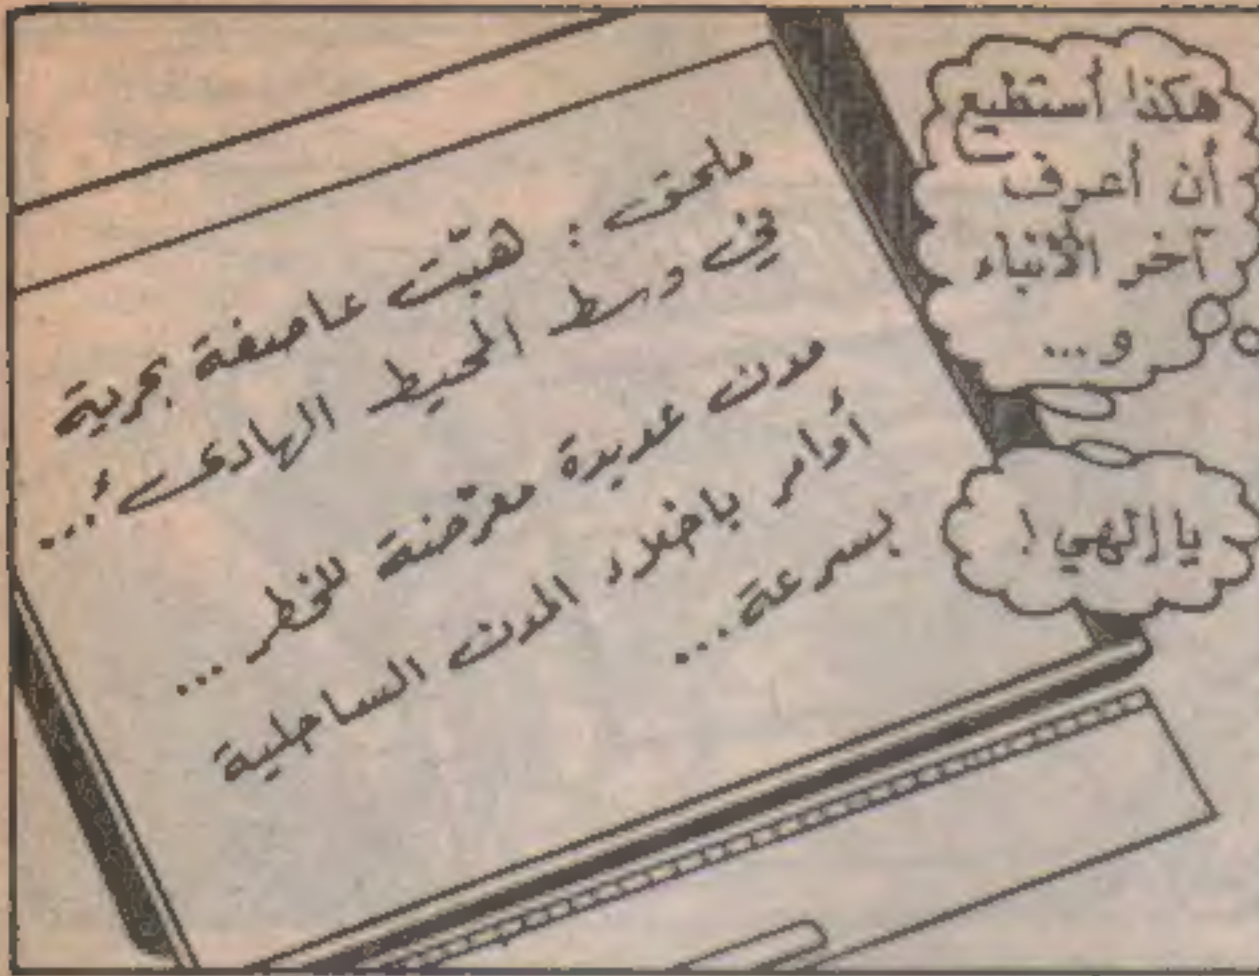 هكذا أستطيع
أن أعرف
آخر الأنباء
و...
يا إلهي !
ملحق : هبّت عاصفة بحرية
في وسط المحيط الهادىء ...
مدن عديدة معرّضة للخطر ...
أوامر باخلاء المدن الساحلية
بسرعة ...